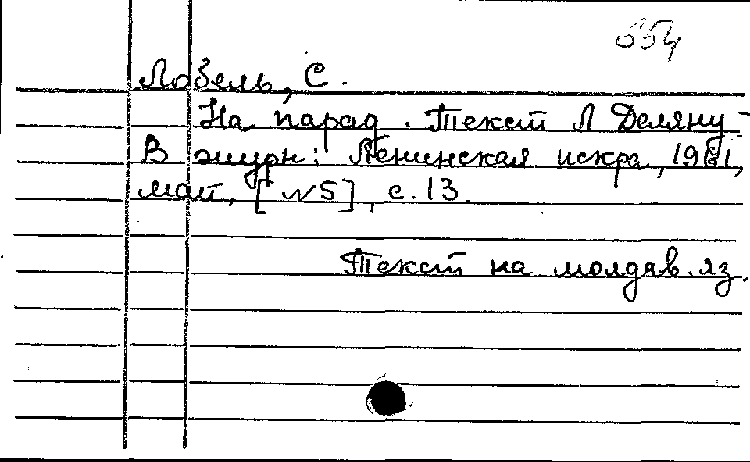 554
Лобель, С.
На парад. Текст Л Деляну –
В журн: Ленинская искра, 1981,
май, [№5], с. 13.
Текст на молдав. яз.